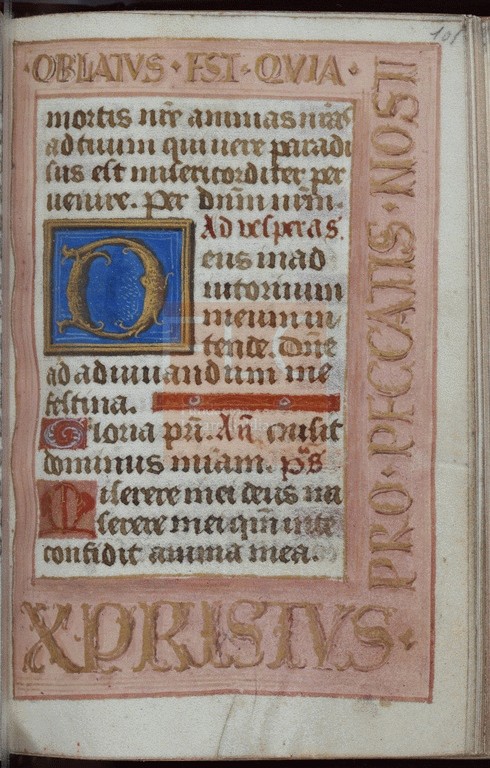 108
OBLATVS · EST · QVIA ·
PRO · PECCATIS · NOSTI
mortis nr̄e animas nr̄as
ad tuum qui uere paradi
sus est misericorditer per
uenire. Per dn̄m nr̄m.
Ad vesperas.
Deus in ad
iutorium
meum in
tende. Dn̄e
ad adiuuandum me
festina.
Gloria pr̄i. An̄ Misit
dominus miam. p̄s
Miserere mei deus mi
serere mei qm̄ in te
confidit anima mea.
XPRISTVS ·